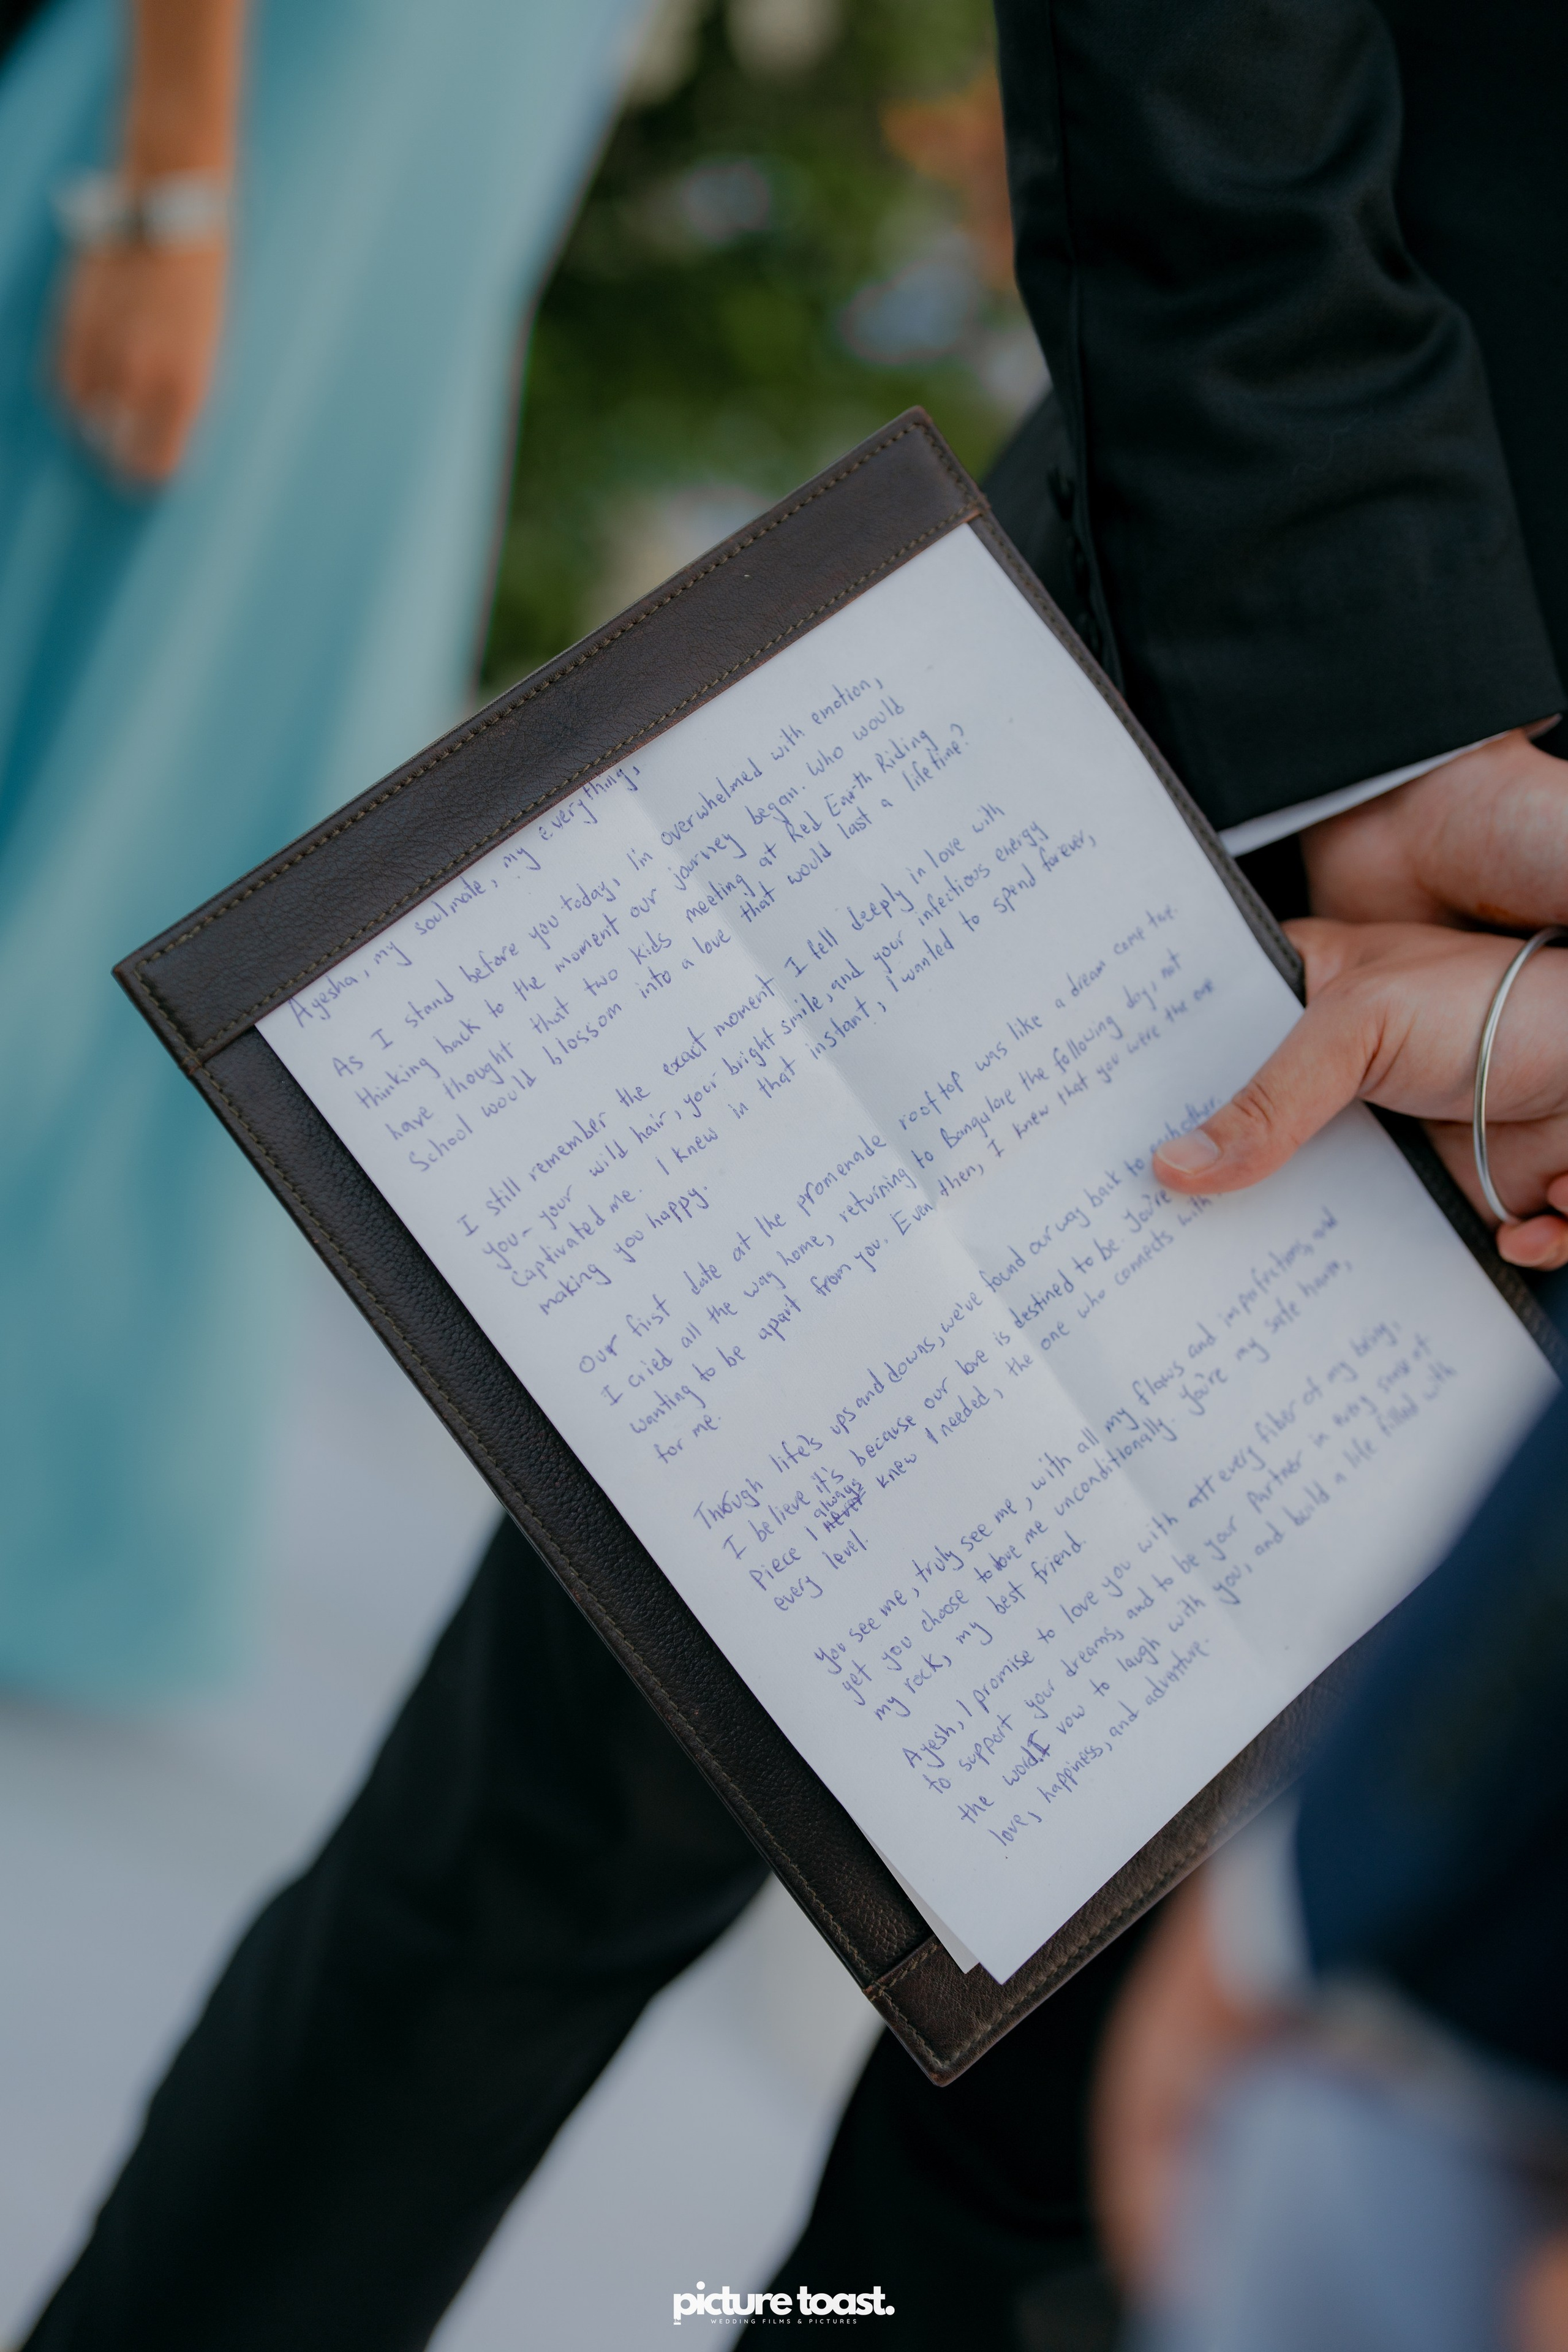 Ayesha, my soulmate, my everything,
As I stand before you today, I'm overwhelmed with emotion,
thinking back to the moment our journey began. Who would
have thought that two kids meeting at Red Earth Riding
School would blossom into a love that would last a lifetime?
I still remember the exact moment I fell deeply in love with
you - your wild hair, your bright smile, and your infectious energy
captivated me. I knew in that instant, I wanted to spend forever,
making you happy.
Our first date at the promenade rooftop was like a dream come true.
I cried all the way home, returning to Bangalore the following day, not
wanting to be apart from you. Even then, I knew that you were the one
for me.
Through life's ups and downs, we've found our way back to each other.
I believe it's because our love is destined to be. You're
always
piece I never knew I needed, the one who connects with
every level.
You see me, truly see me, with all my flaws and imperfections, and
yet you choose to love me unconditionally. You're my safe haven,
my rock, my best friend.
Ayesh, I promise to love you with every fiber of my being,
to support your dreams, and to be your partner in every sense of
the word. I vow to laugh with you, and build a life filled with
love, happiness, and adventure.
picture toast.
WEDDING FILMS & PICTURES